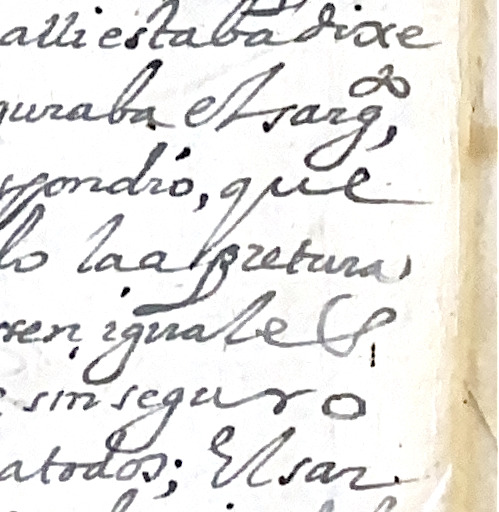 alli estaba dixe
guraba el sarg.to,
spondió, que
lo la apretura,
sen, iguales
e sin seguro
a todos; El sar